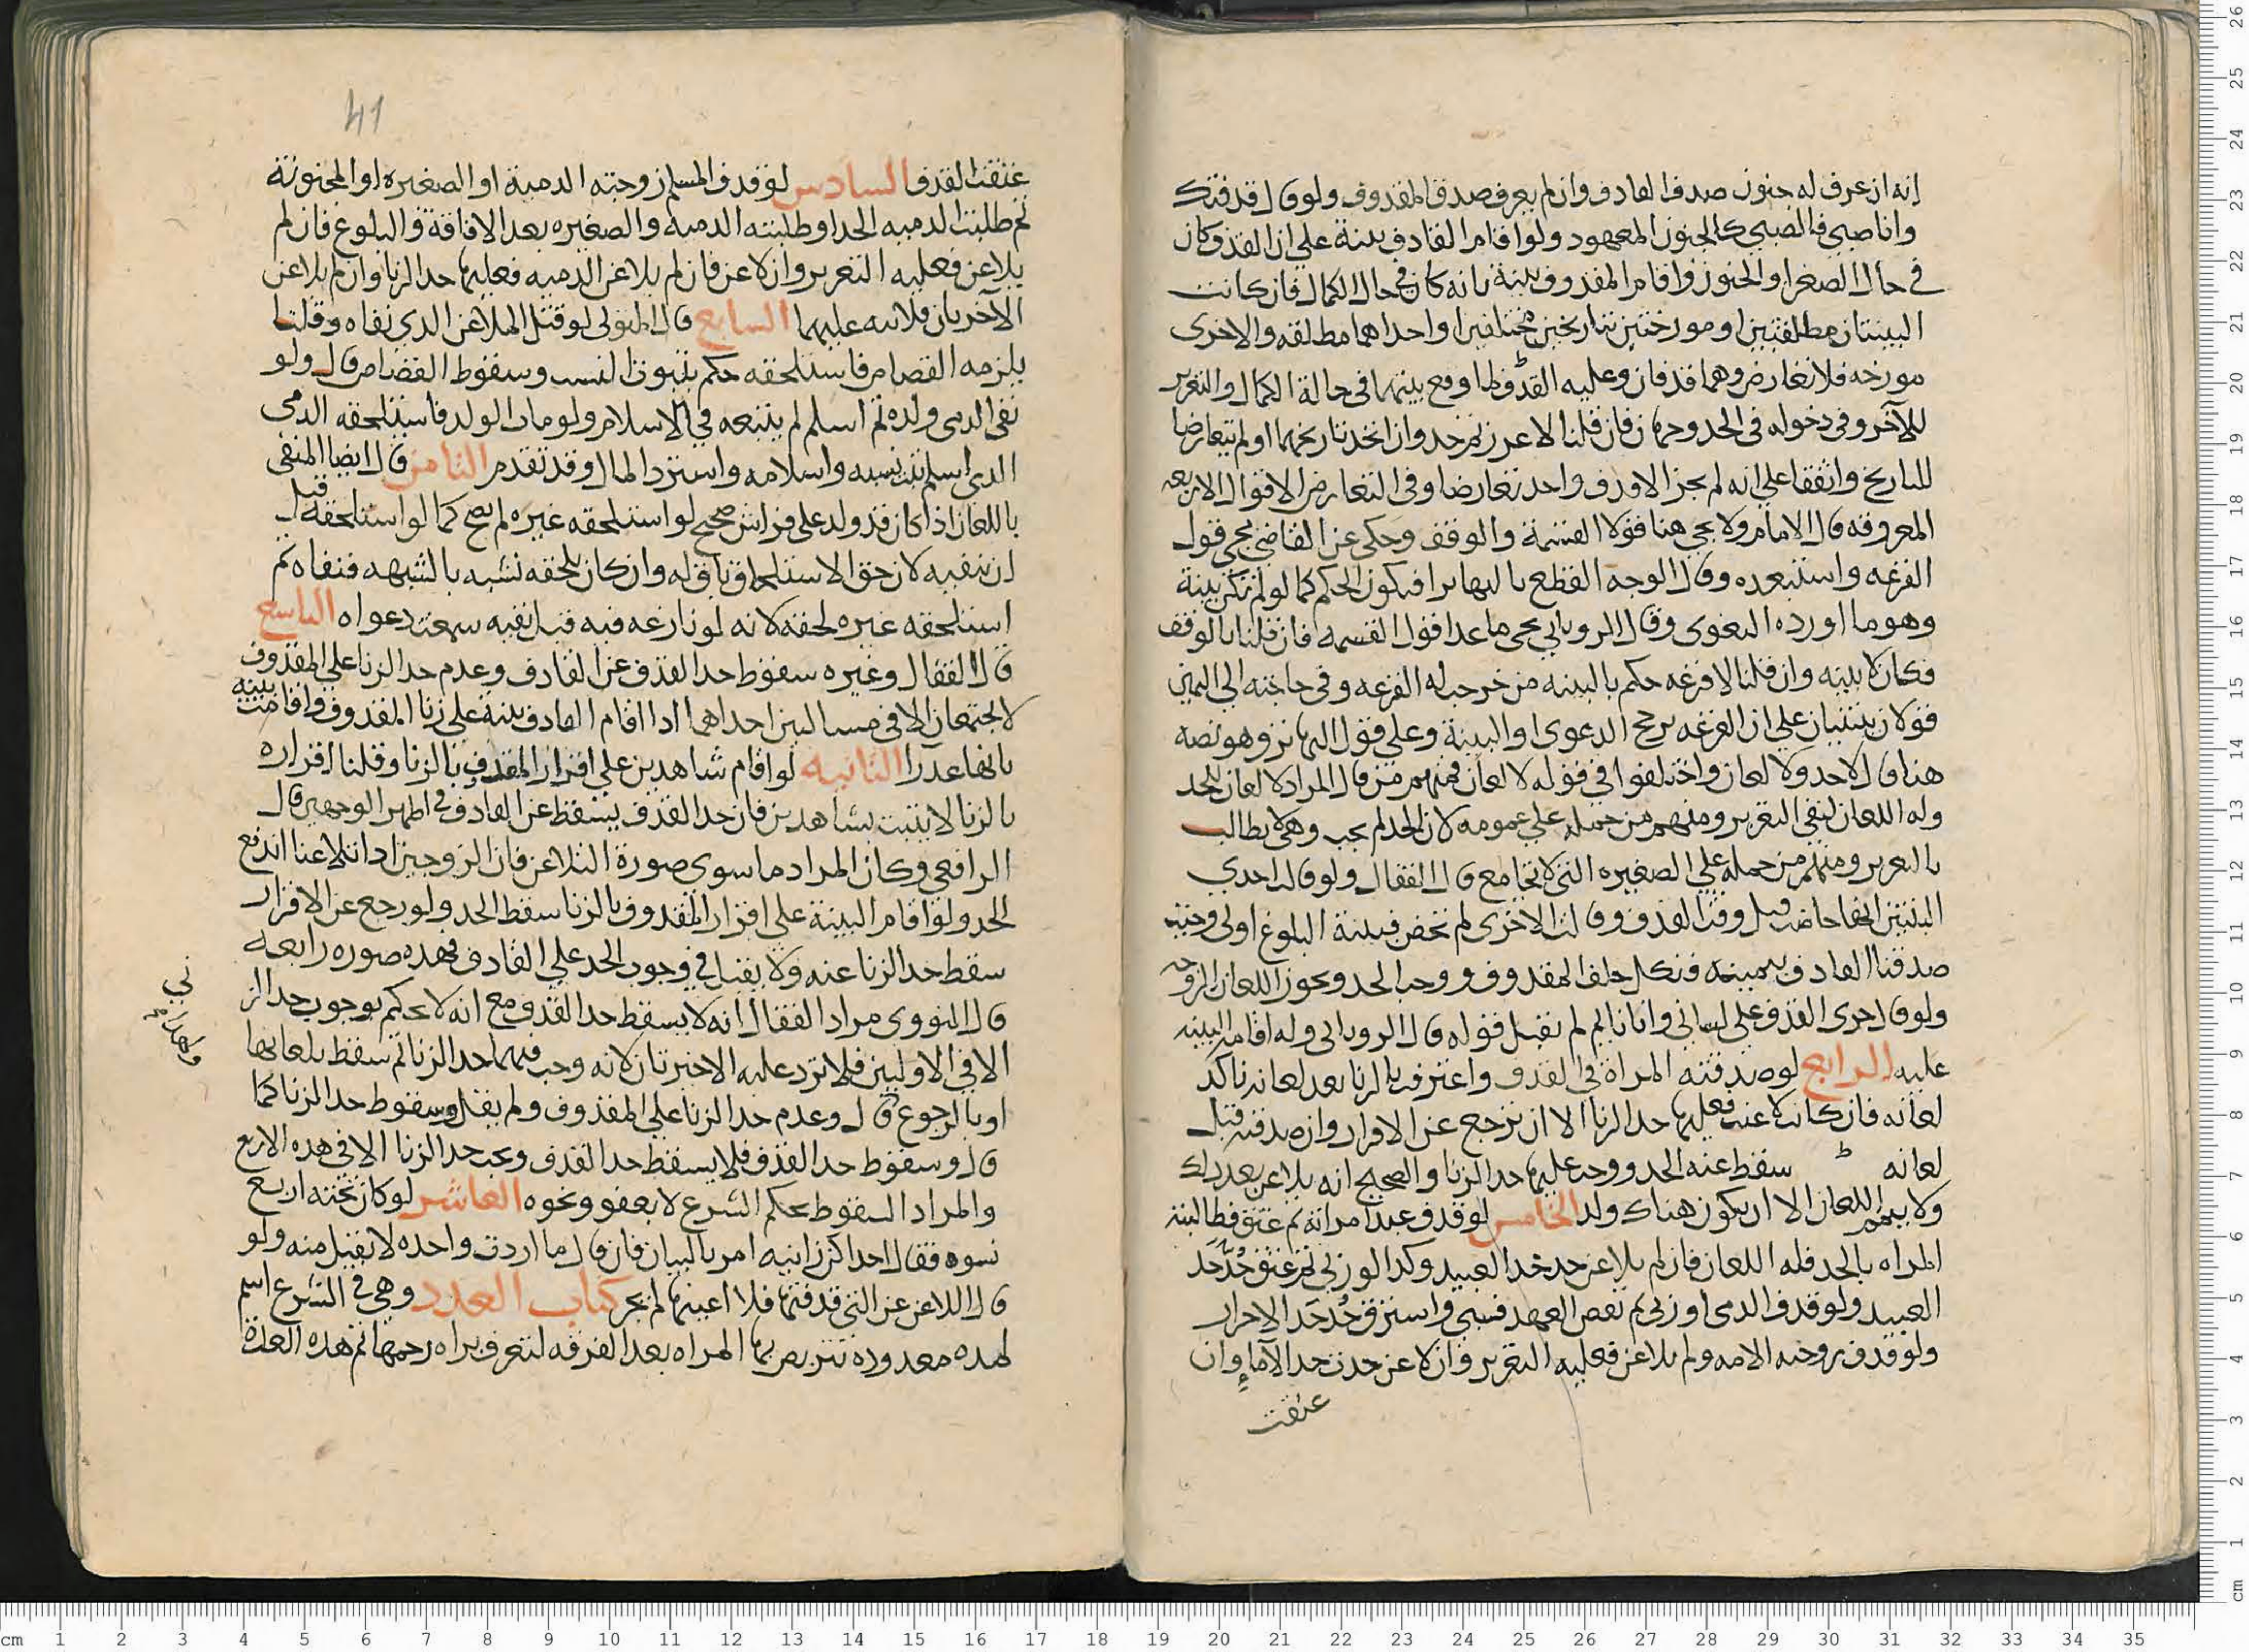 انه ان عرف له جنون صدق القاذف وان لم يعرف صدق المقذوف ولو قال قذفتك
وانا صبي فالصبي كالجنون المعهود ولو اقام القاذف بينة على ان القذف كان
في حال الصغر او الجنون واقام المقذوف بينة بانه كان في حال الكمال فان كانت
البينتان مطلقتين او مورختين بتاريخين مختلفين او احداهما مطلقه والاخرى
مورخه فلا تعارض وهما قذفان وعليه الحد لما وقع بينهما في حالة الكمال والتعزير
للآخر وفي دخوله في الحد وجهان فان قلنا لاعزر ثم حد وان اتحد تاريخهما او لم يتعارضا
للتاريخ واتفقا على انه لم يجز الا قذف واحد تعارضا وفي التعارض الاقوال الاربعه
المعروفه قال الامام ولا يجي هنا قولا القسمة والوقف وحكى عن القاضي مجي قول
القرعه واستبعده وقال الوجه القطع بالتهاتر فيكون الحكم كما لو لم تكن بينة
وهو ما اورده البغوى وقال الروياني يجي ما عدا قول القسمه فان قلنا بالوقف
فكان لا بينه وان قلنا الاقرعه حكم بالبينه من خرجت له القرعه وفي حاجته الى اليمين
قولان ينبنيان على ان القرعه ترجح الدعوى او البينة وعلى قول التهاتر وهو نصه
هنا قال لا حد ولا لعان واختلفوا في قوله لا لعان فمنهم من قال المراد لا لعان للحد
وله اللعان لنفي التعزير ومنهم من حمله على عمومه لان الحد لم يجب وهي لا تطالب
بالتعزير ومنهم من حمله على الصغيره التي لا تجامع قال القفال ولو قالت احدى
البينتين انها حاضت قبل وقت القذف وقالت الاخرى لم تحض فبينة البلوغ اولى وحيث
صدقنا القاذف بيمينه فنكل حلف المقذوف ووجب الحد ويجوز اللعان للزوجه
ولو قال جرى القذف على لساني وانا نايم لم يقبل قوله قال الروياني وله اقامة البينه
عليه الرابع لو صدقته المراة في القذف واعترفت بالزنا بعد لعانه تاكد
لعانه فان كانت لاعنت فعليها حد الزنا الا ان ترجع عن الاقرار وان صدقته قبل
لعانه سقط عنه الحد ووجب عليها حد الزنا والصحيح انه يلاعن بعد ذلك
ولا يتمم اللعان الا ان يكون هناك ولد الخامس لو قذف عبد امراته ثم عتق فطالبته
المراه بالحد فله اللعان فان لم يلاعن حد حد العبيد وكذا لو زنى ثم عتق حُدّ حَد
العبيد ولو قذف الذمي او زنى ثم نقض العهد فسبي واسترق حُد حَد الاحرار
ولو قذف زوجته الامه ولم يلاعن فعليه التعزير وان لاعن حدت حد الآماءِ وان
عتقت
41
عتقت القذف السادس لو قذف المسلم زوجته الذمية او الصغيره او المجنونة
ثم طلبت الذميه الحد او طلبته الذميه والصغيره بعد الافاقة والبلوغ فان لم
يلاعن فعليه التعزير وان لاعن فان لم يلاعن الذميه فعليها حد الزنا وان لم يلاعن
الآخريان فلا شيء عليهما السابع قال المتولي لو قتل الملاعن الذي نفاه وقلنا
يلزمه القصاص فاستلحقه حكم بثبوت النسب وسقوط القصاص قال ولو
نفى الذمى ولده ثم اسلم لم يتبعه في الاسلام ولو مات الولد فاستلحقه الذمى
الذى اسلم ثبت نسبه واسلامه واسترد المال وقد تقدم الثامن قال ايضا المنفى
باللعان اذا كان قد ولد على فراش صحيح لو استلحقه غيره لم يصح كما لو استلحقه قبل
ان ينفيه لان حق الاستلحاق باق له وان كان يلحقه نسبه بالشبهه فنفاه ثم
استلحقه غيره لحقه لانه لو نازعه فيه قبل نفيه سمعت دعواه التاسع
قال القفال وغيره سقوط حد القذف عن القاذف وعدم حد الزنا على المقذوف
لا يجتمعان الا في مسالتين احداهما اذا اقام القاذف بينة على زنا المقذوف واقامت بينه
بانها عذرا الثانيه لو اقام شاهدين على اقرار المقذوف بالزنا وقلنا اقراره
بالزنا لا يثبت بشاهدين فان حد القذف يسقط عن القاذف في اظهر الوجهين قال
الرافعي وكان المراد ما سوى صورة التلاعن فان الزوجين اذا تلاعنا اندفع
الحد ولو اقام البينة على اقرار المقذوف بالزنا سقط الحد ولو رجع عن الاقرار
سقط حد الزنا عنه ولا يقبل في وجوب الحد على القاذف فهذه صوره رابعه
قال النووى مراد القفال انه لا يسقط حد القذف مع انه لا يحكم بوجوب حد الز
الا في الاوليين فلا ترد عليه الاخيرتان لانه وجب فيهما حد الزنا ثم سقط بلعانها
او بالرجوع قال وعدم حد الزنا على المقذوف ولم يقل وسقوط حد الزنا كما
قال وسقوط حد القذف فلا يسقط حد القذف ويجب حد الزنا الا في هذه الاربع
والمراد السقوط بحكم الشرع لا بعفو ونحوه العاشر لو كان تحته اربع
نسوه فقال احداكن زانيه امر بالبيان فان قال ما اردت واحده لا تقبل منه ولو
قال الاعن عن التي قذفتها فلا اعينها لم يجز كتاب العدد وهي في الشرع اسم
لمده معدوده تتربص بها المراه بعد الفرقه لتعرف براه رحمها ثم هذه العدة